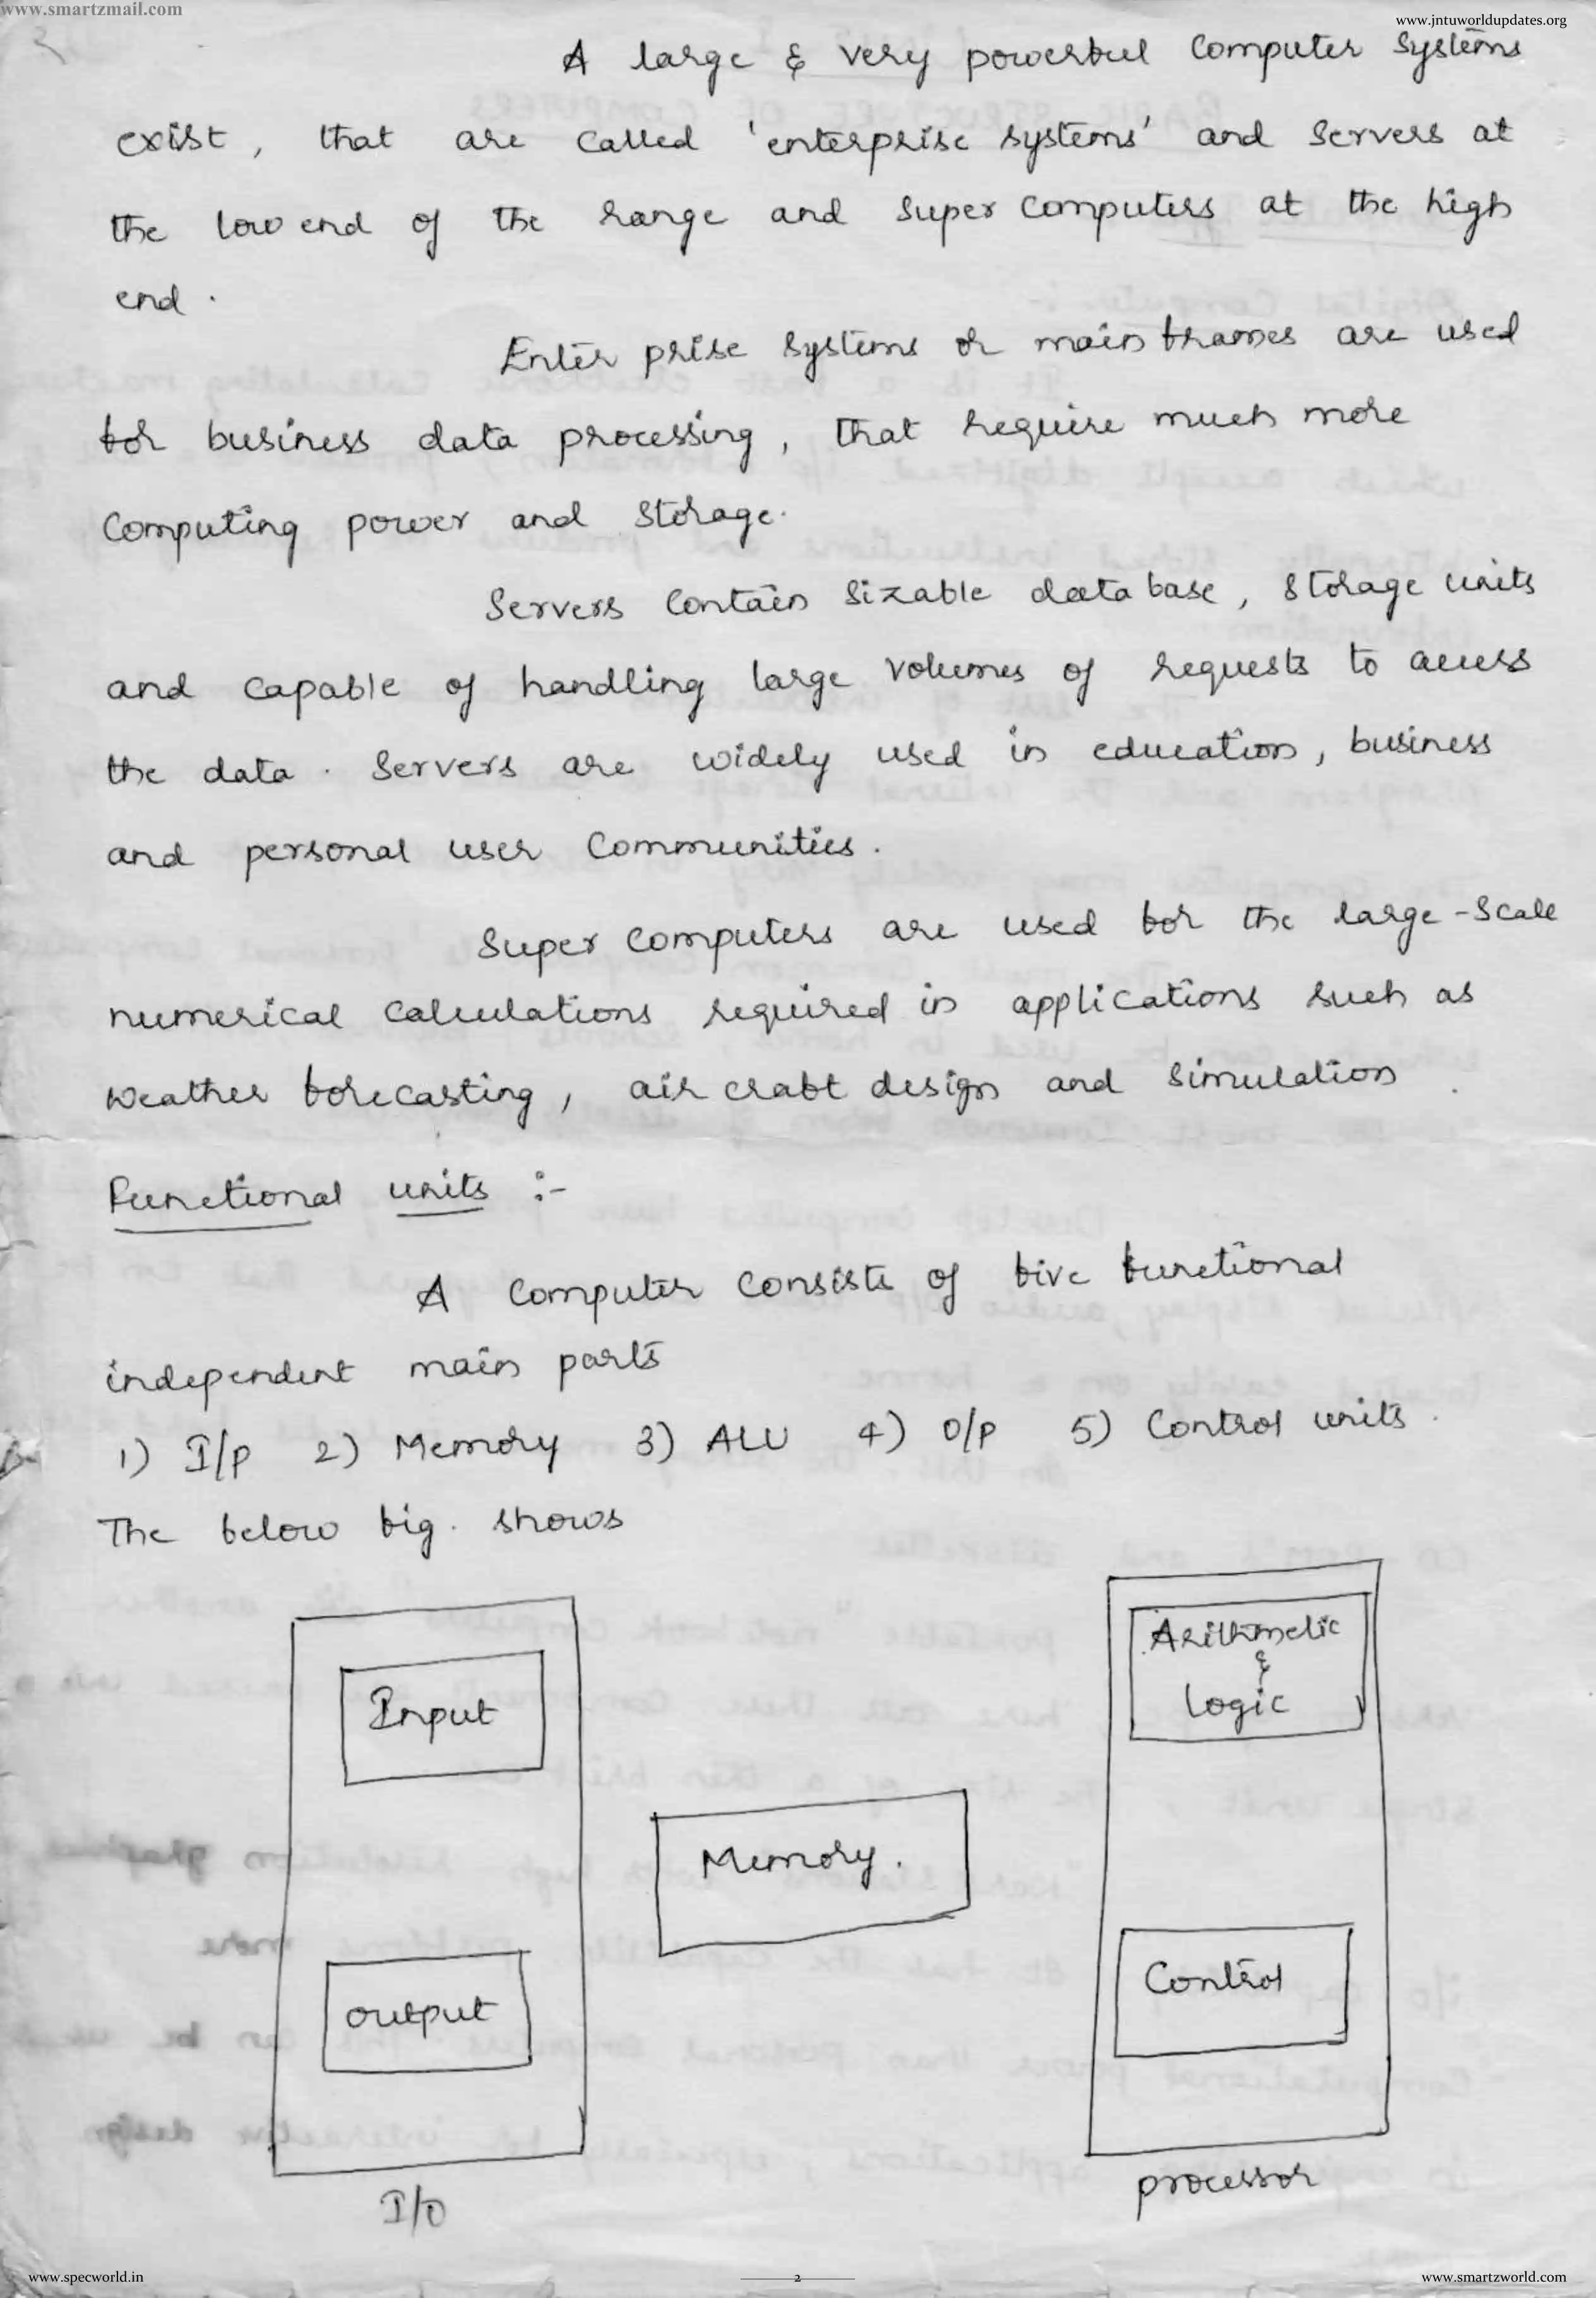 www.smartzmail.com
www.jntuworldupdates.org
A large & very powerful Computer Systems
exist, that are called 'enterprise systems' and servers at
the low end of the range and Super Computers at the high
end.
Enter prise systems or main frames are used
for business data processing, that require much more
Computing power and storage.
Servers Contain Sizable data base, storage units
and capable of handling large volumes of requests to access
the data. Servers are widely used in education, business
and personal user Communities.
Super Computers are used for the large-scale
numerical calculations required in applications such as
weather forecasting, air craft design and simulation.
Functional units :-
A Computer Consists of five functional
independent main parts
1) I/p 2) Memory 3) ALU 4) O/p 5) Control units.
The below fig. shows
Arithmetic
&
Logic
Input
Memory.
Control
output
I/O
processor
www.specworld.in
2
www.smartzworld.com